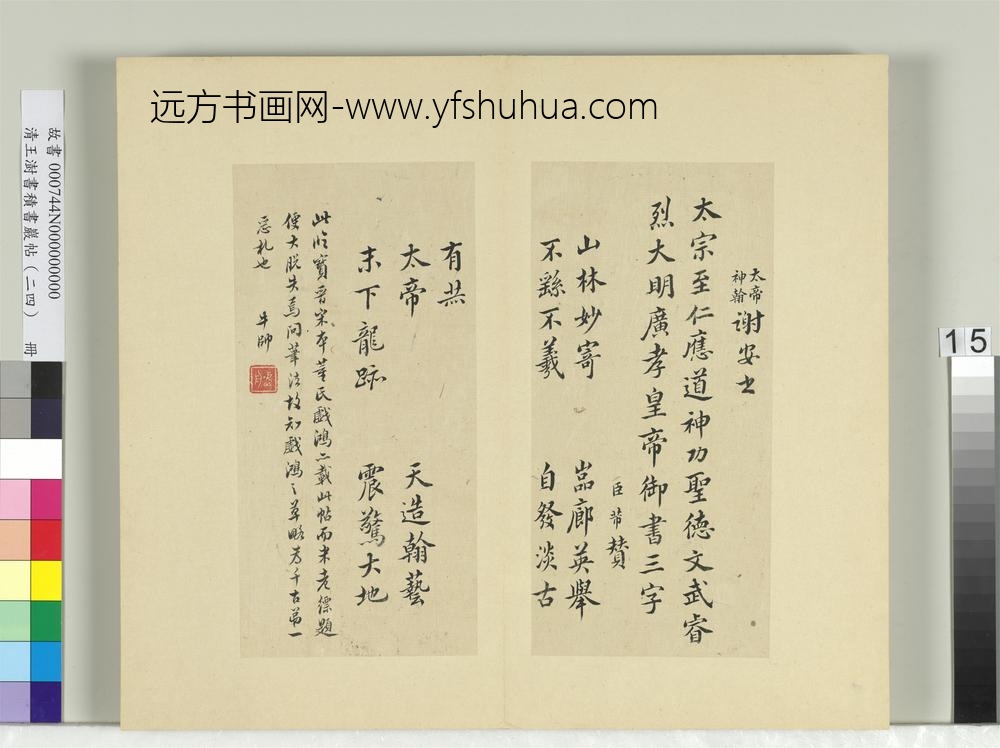 远方书画网-www.yfshuhua.com
太帝
神翰
謝安书
太宗至仁應道神功聖德文武睿
烈大明廣孝皇帝御書三字
臣芾賛
山林妙寄 嵓廊英舉
不繇不羲 自發淡古
有赫
太帝 天造翰藝
末下龍跡 震驚大地
此臨寶晉宋本董氏戲鴻亦載此帖而米老標題
便大脫失焉問筆法故知戲鴻之草略为千古第一
惡札也
15
故書 000744N000000000
清王澍書積書巖帖(二四) 冊